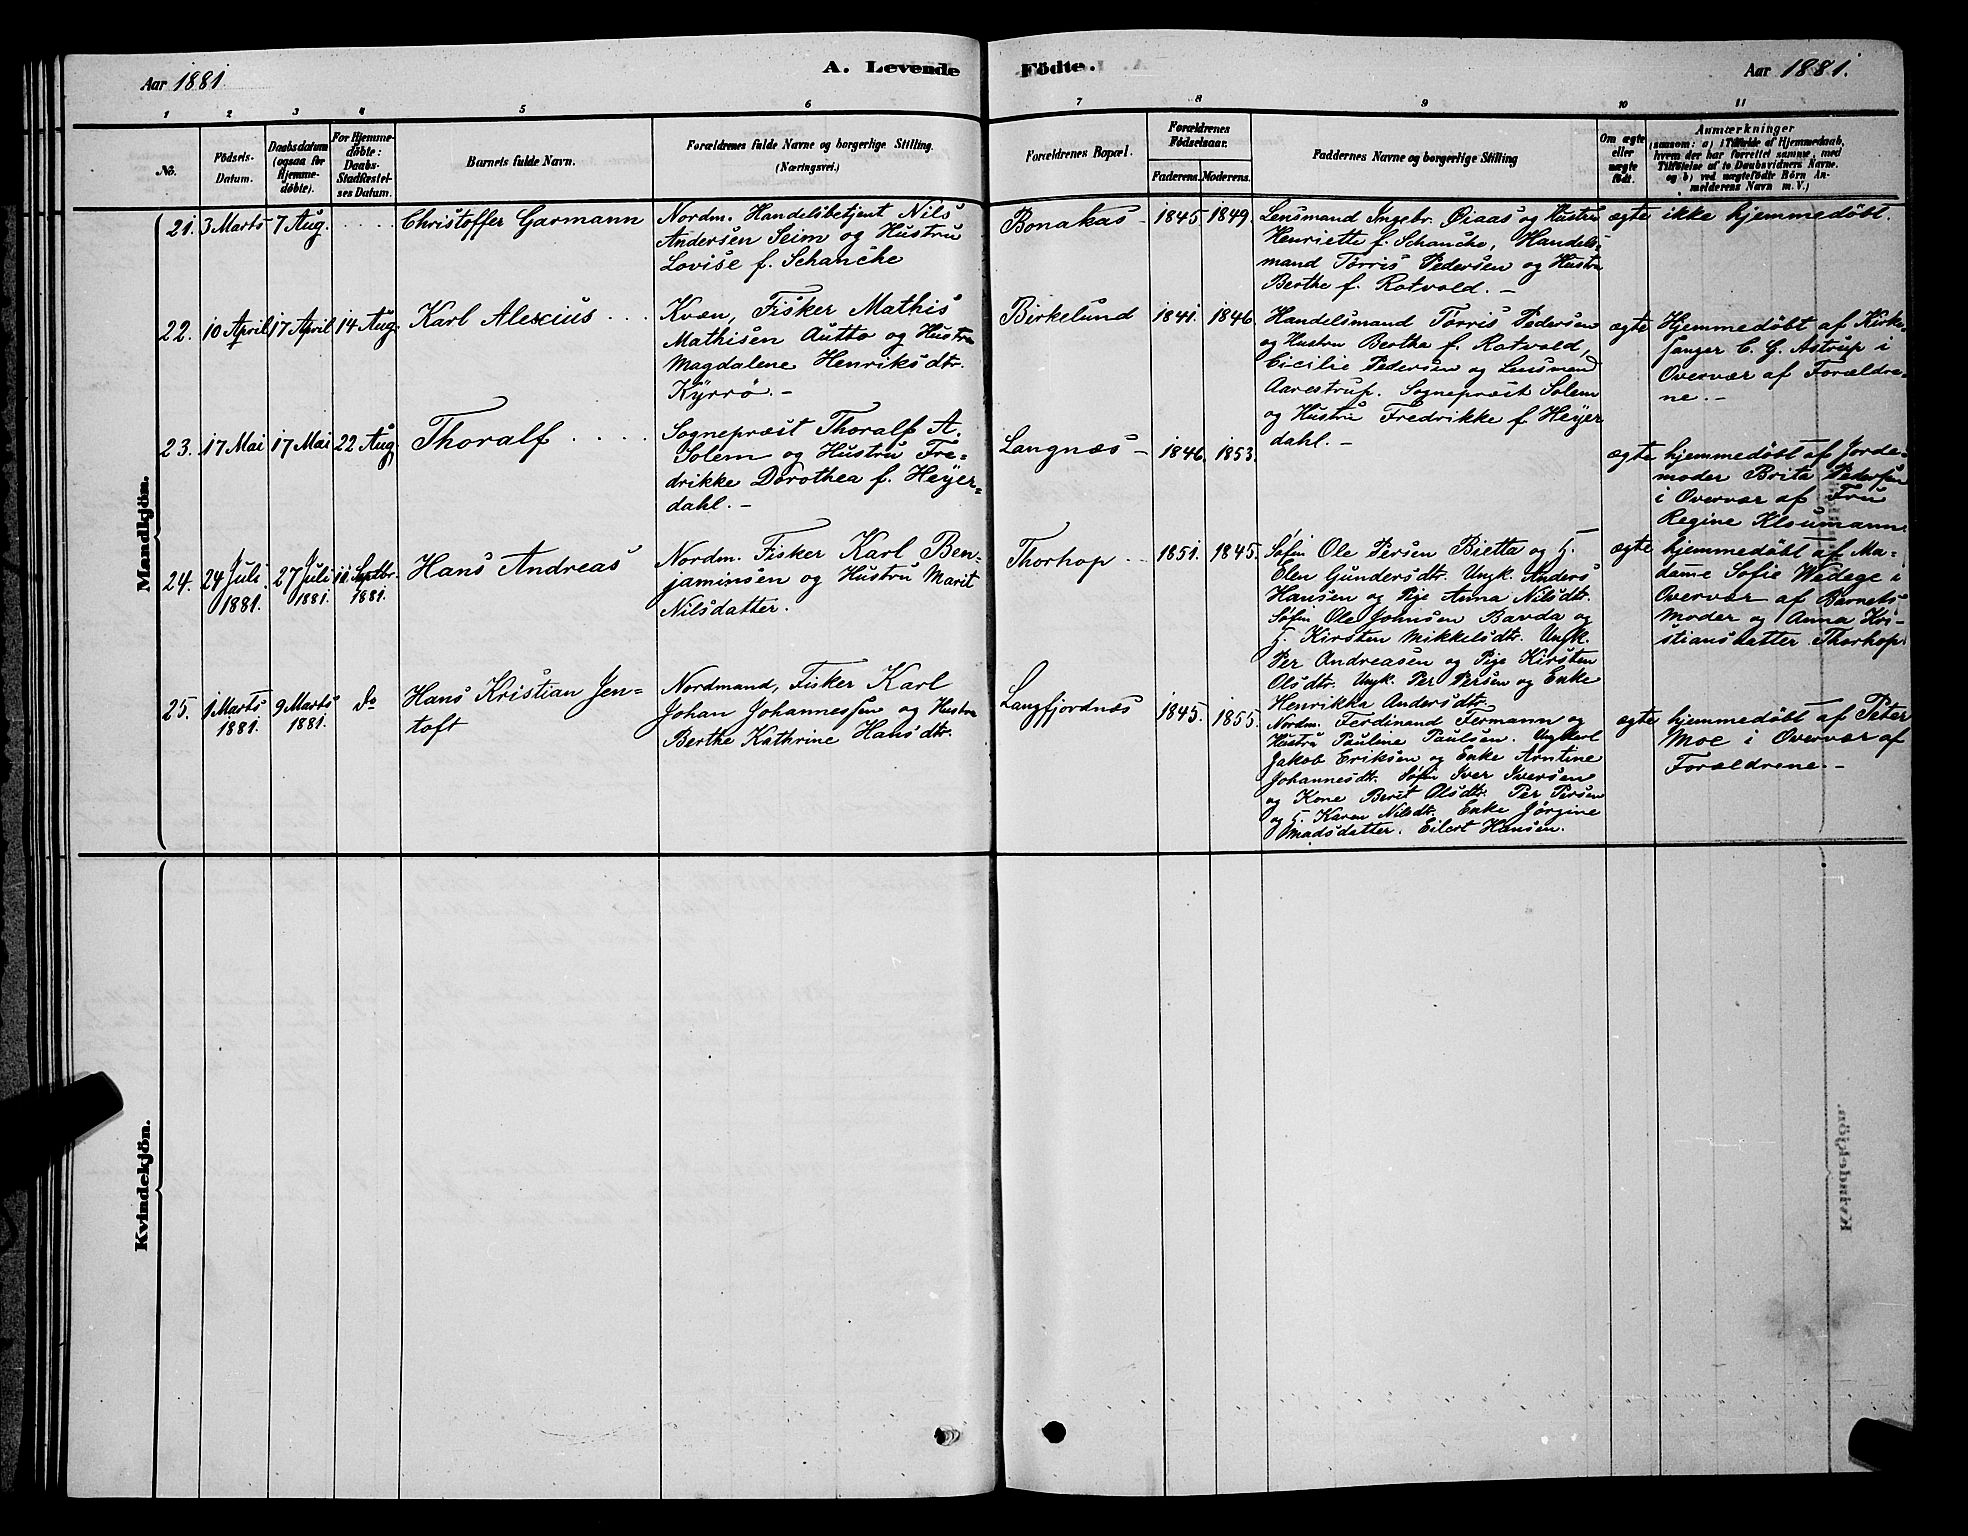 Aar 1881.
A. Levende
1 2 3 4 5 6
No.
Födsels-
Datum.
Daabsdatum
(ogsaa for
Hjemme-
döbte).
For Hjemme-
döbte:
Daabs-
Stadfæstel-
ses Datum.
Barnets fulde Navn.
Forældrenes fulde Navne og borgerlige Stilling.
(Næringsvei.)
Mandkjön.
21. 3 Marts 7 Aug. . . . . Christoffer Garmann
Nordm. Handelsbetjent Nils
Andersen Seim og Hustru
Lovise f. Schanche
22. 10 April 17 April 14 Aug. Karl Alexius . . .
Kvæn, Fisker Mathis
Mathisen Autto og Hustru
Magdalene Henriksdtr.
Kyrrø. -
23. 17 Mai 17 Mai 22 Aug Thoralf . . . .
Sognepræst Thoralf A.
Solem og Hustru Fre-
drikke Dorothea f. Heyer-
dahl. -
24. 24 Juli
1881.
27 Juli
1881.
11. Septbr.
1881.
Hans Andreas
Nordm. Fisker Karl Ben-
jaminsen og Hustru Marit
Nilsdatter.
25. 1 Marts
1881.
9 Marts
1881.
do
Hans Kristian Jen-
toft
Nordmand, Fisker Karl
Johan Johannessen og Hustru
Berthe Kathrine Hansdtr.
Kvindekjön.
Födte.
Aar 1881.
7 8 9 10 11
Forældrenes Bopæl.
Forældrenes
Födselsaar.
Faderens. Moderens.
Faddernes Navne og borgerlige Stilling
Om ægte
eller
uægte
födt.
Anmærkninger
(saasom: a) i Tilfælde af Hjemmedaab,
hvem der har forrettet samme, med
Tilföielse af to Daabsvidners Navne.
og b) ved uægtefödte Börn An-
melderens Navn m. V.)
Bonakas - 1845 1849.
Lensmand Ingebr. Øiaas og Hustru
Henriette f. Schanche, Handels-
mand Tørris Pedersen og Hustru
Berthe f. Rotvold. -
ægte ikke hjemmedøbt.
Birkelund 1841. 1846.
Handelsmand Tørris Pedersen
og Hustru Berthe f. Rotvold,
Cicilie Pedersen og Lensmand
Aarestrup. Sognepræst Solem
og Hustru Fredrikke f. Heyer
dahl. -
ægte Hjemmedøbt af Kirke-
sanger C. G. Astrup i
Overvær af Forældre-
ne. -
Langnæs - 1846. 1853.
ægte hjemmedøbt af Jorde-
moder Brita Pedersen
i Overvær af Fru
Regine Klaumann
Thorhop . . 1851. 1845.
Søfin Ole Persen Bietta og H.
Elen Gundersdtr. Ungk. Anders
Hansen og Pige Anna Nilsdtr.
Søfin Ole Johnsen Bavda og
H. Kirsten Mikkelsdtr. Ungk.
Per Andreasen og Pige Kirsten
Olsdtr. Ungk. Per Persen og Enke
Henrikka Andersdtr.
ægte hjemmedøbt af Ma-
dame Sofie Wedege i
Overvær af Barnets
Moder og Anna Kri-
stiansdatter Thorhop.
Langfjordnæs 1845. 1855.
Nordm. Ferdinand Fermann og
Hustru Pauline Paulsen. Ungkarl
Jakob Eriksen og Enke Arntine
Johannesdtr. Søfin Iver Iversen
og Kone Berit Olsdtr. Per Persen
og H. Karen Nilsdtr. Enke Jørgine
Madsdatter. Eilert Hansen.
ægte hjemmedøbt af Peter
Moe i Overvær af
Forældrene. -